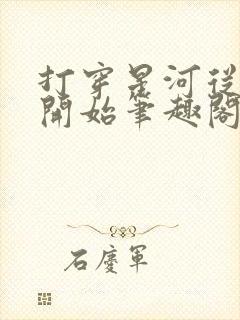 打穿星河從
開始筆趣閣
石慶軍